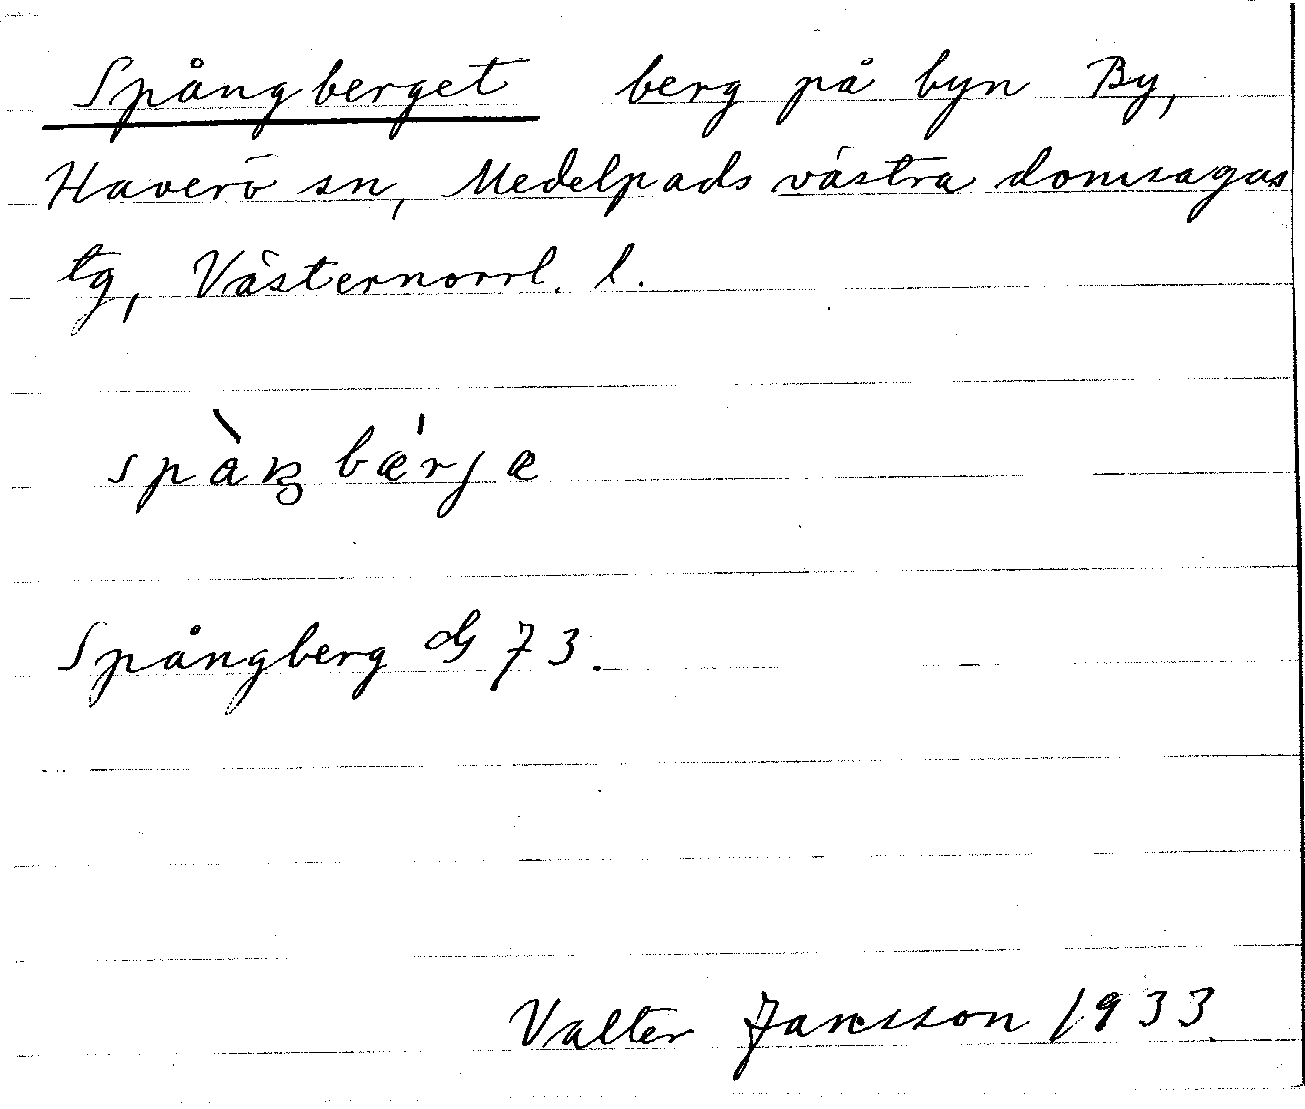 Spångberget berg på byn By,
Haverö sn, Medelpads västra domsagas
tg, Västernorrl. l.
spàŋbǽrjæ
Spångberg dG 73.
Valter Jansson 1933.